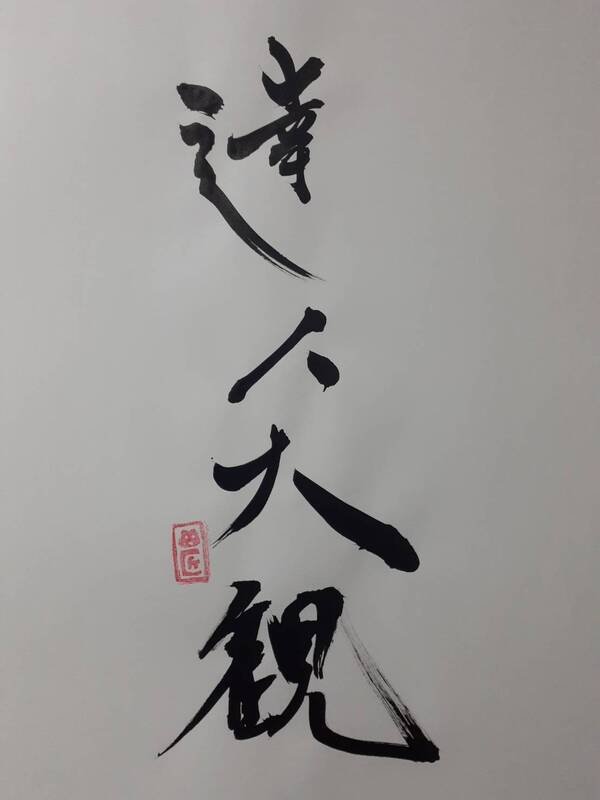 達人大観